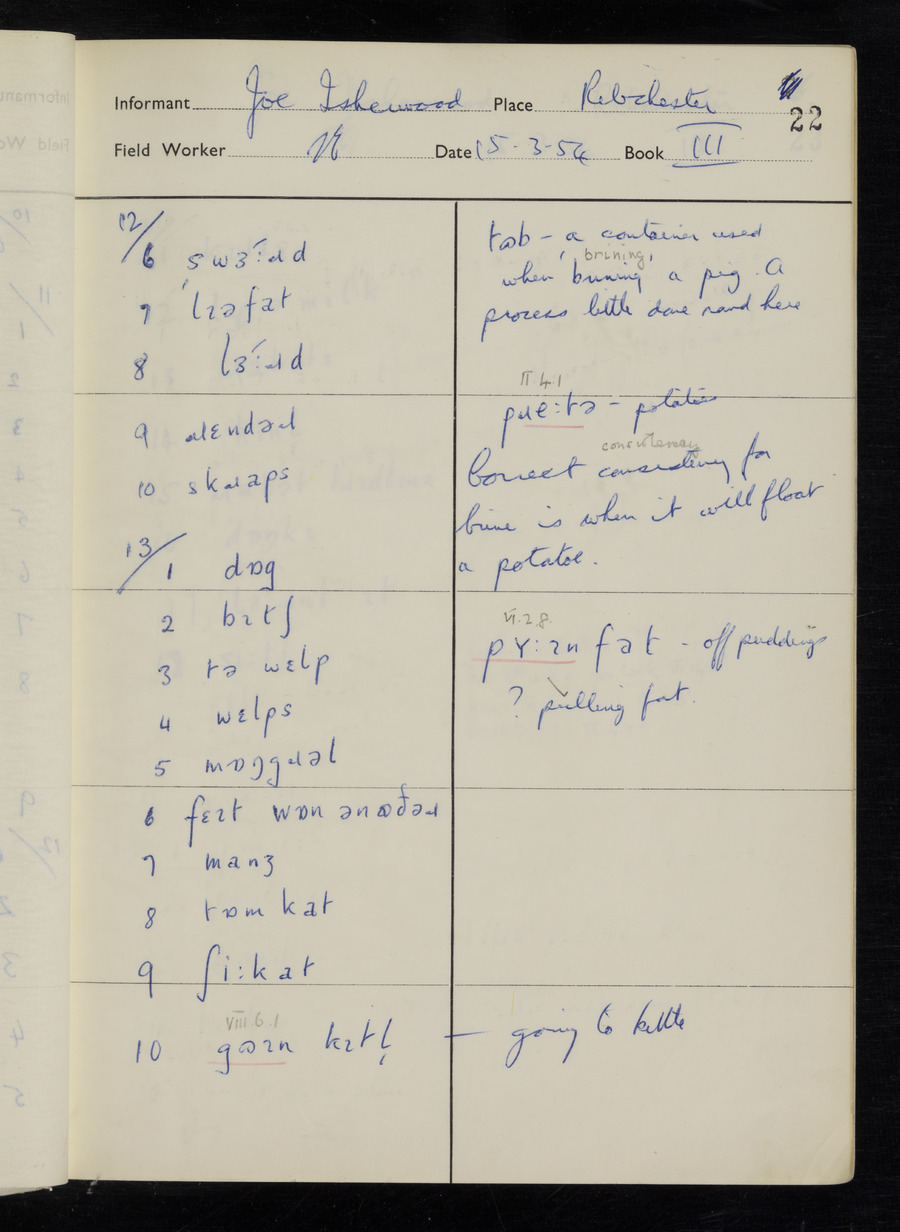 Informant Joe Isherwood Place Ribchester
22
Field Worker Date 15-3-54 Book III
12/
6 swɜ́ːɹd
7 'lɪəfat
8 lɜ́ːɹd
9 ɹɛndəɹ
10 skɹaps
13/
1 dɒg
2 bɪtʃ
3 tə wɛlp
4 wɛlps
5 mɒŋgɹəl
6 fɛɪt wɒn ənʊðəɹ
7 manʒ
8 tɒm kat
9 ʃiːkat
VIII.6.1
10 gʊɪn kɪtl̩
tʊb – a container used
brining
when brining a pig. A
process little done round here
II.4.1
pɹeːtə – potatoes
consistency
Correct consistency for
brine is when it will float
a potatoe.
VI.2.8.
pʏːɪn fat – off puddings
? pulling fat.
— going to kittle